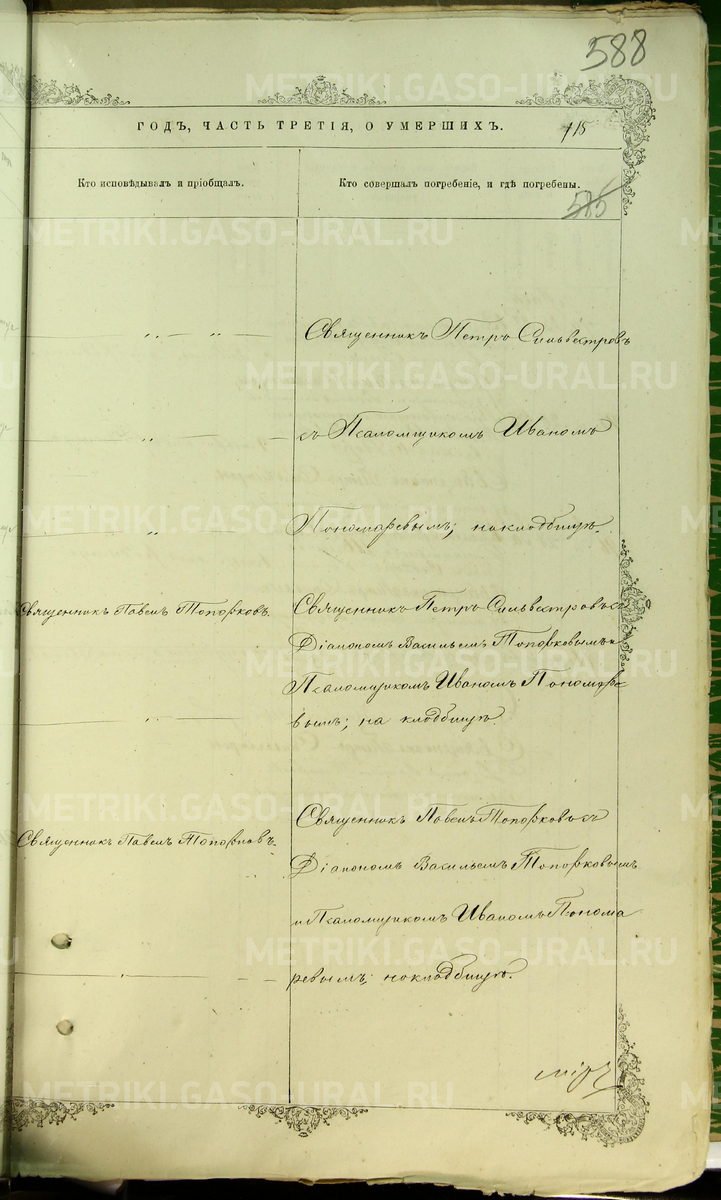 588
ГОДЪ, ЧАСТЬ ТРЕТІЯ, О УМЕРШИХЪ.
715
Кто исповѣдывалъ и пріобщалъ.
Кто совершалъ погребеніе, и гдѣ погребены.
585
Священникъ Петръ Сильвестровъ
съ Псаломщикомъ Иваномъ
Пономаревымъ; на кладбищѣ.
Священникъ Павелъ Топорковъ.
Священникъ Петръ Сильвестровъ съ
Діакономъ Васильемъ Топорковымъ и
Псаломщикомъ Иваномъ Пономаре
вымъ; на кладбищѣ.
Священникъ Павелъ Топорковъ.
Священникъ Павелъ Топорковъ съ
Діакономъ Васильемъ Топорковымъ
и Псаломщикомъ Иваномъ Понома
ревымъ; на кладбищѣ.
METRIKI.GASO-URAL.RU